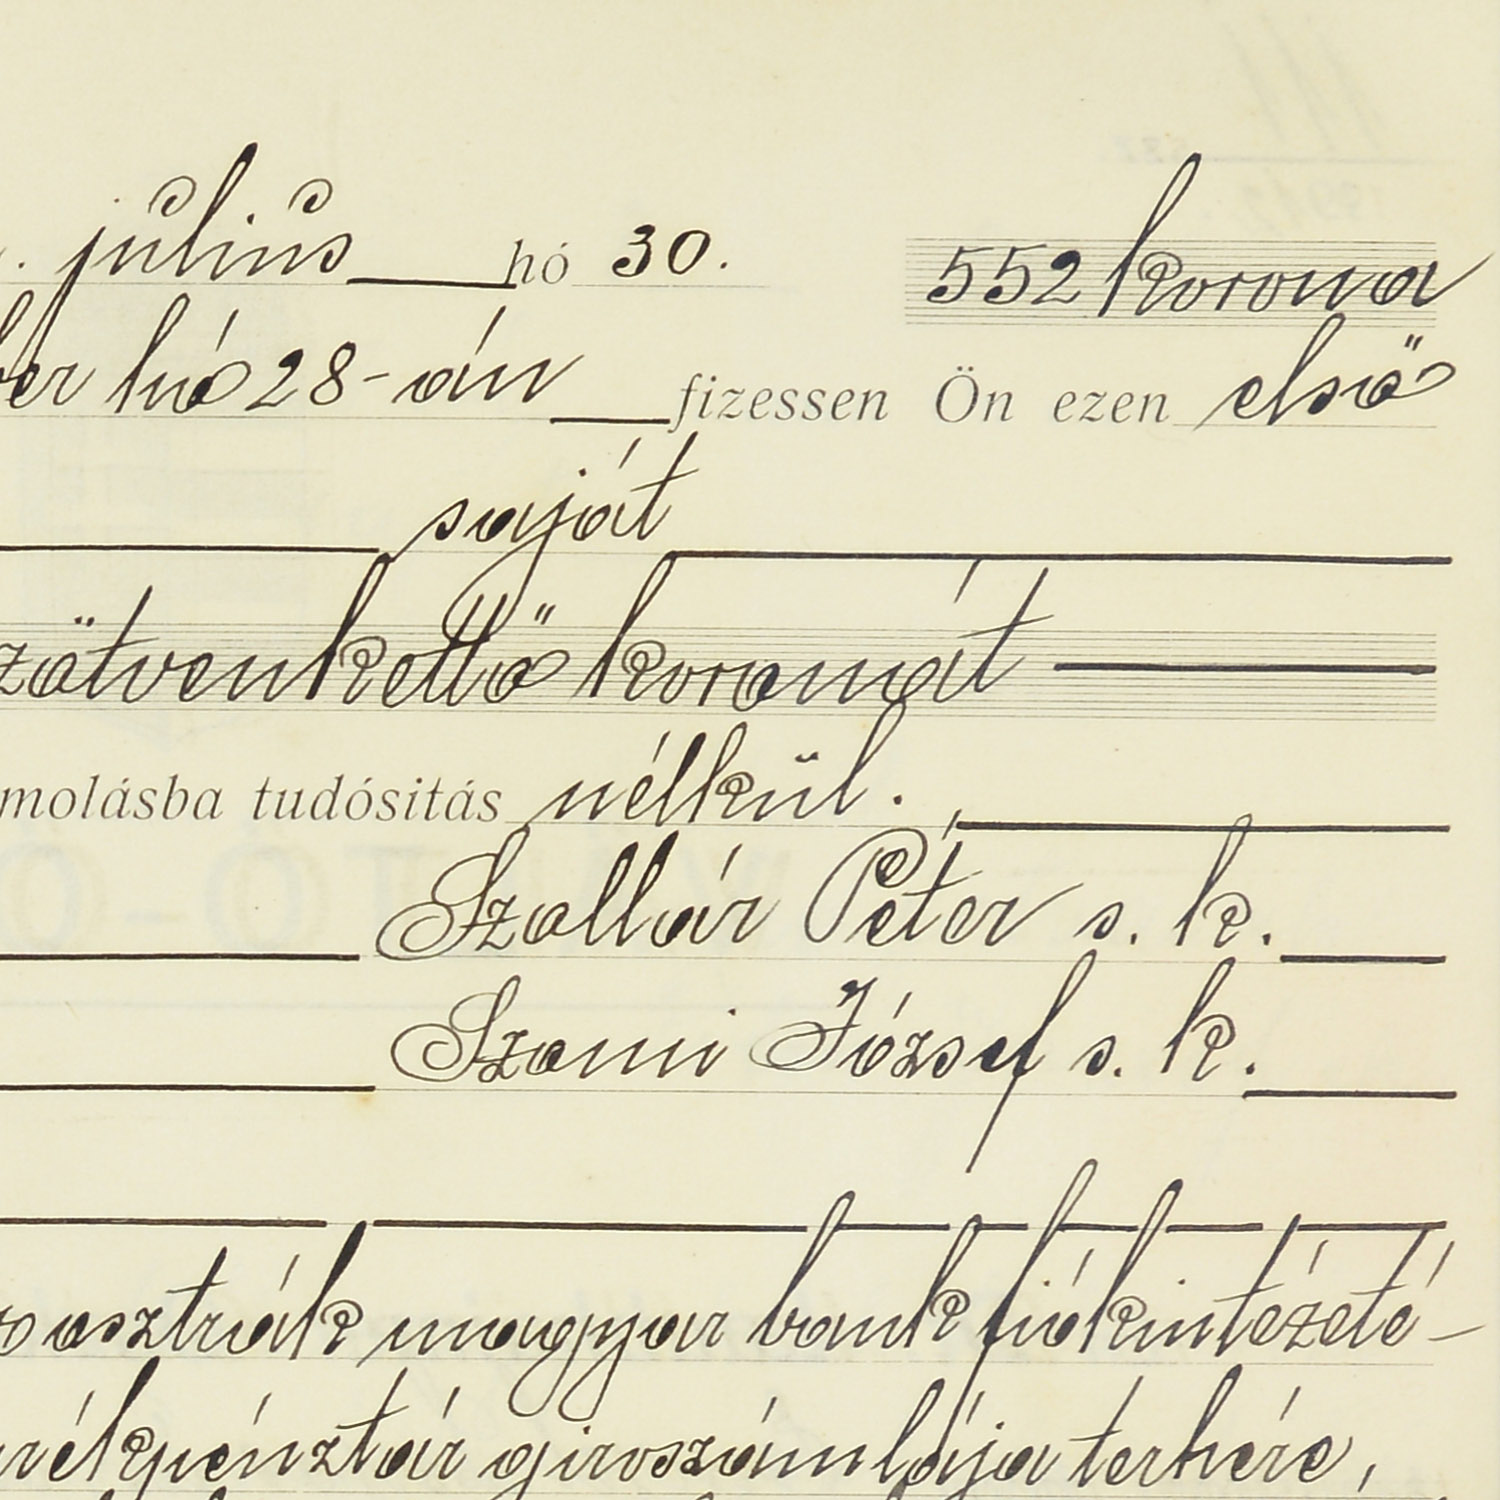 . július hó 30. 552 korona
ber hó 28-án fizessen Ön ezen első
saját
zötvenkettő koronát
molásba tudósitás nélkül.
Szollár Péter s. k.
Szomi József s. k.
osztrák magyar bank fiókintézeté-
rékpénztár giroszámlája terhére,